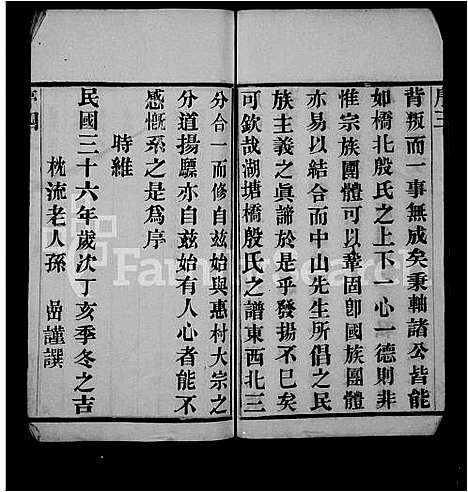 序三
背叛而一事無成矣秉軸諸公皆能
如橋北殷氏之上下一心一德則非
惟宗族團體可以鞏固卽國族團體
亦易以結合而中山先生所倡之民
族主義之眞諦於是乎發揚不已矣
可欽哉湖塘橋殷氏之譜東西北三
分合一而修自茲始與惠村大宗之
分道揚驃亦自茲始有人心者能不
感慨系之是爲序
時維
民國三十六年歲次丁亥季冬之吉
枕流老人孫嵒謹撰
序四
FamilySearch